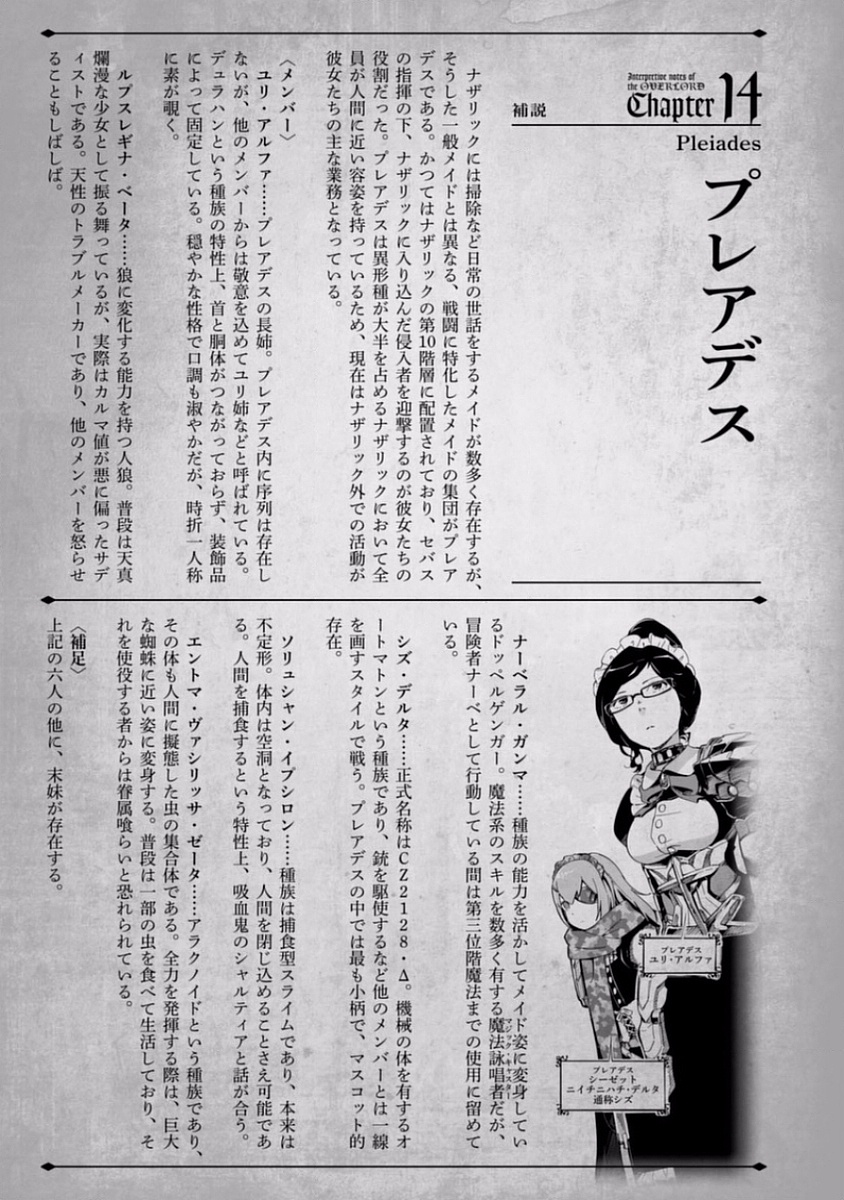 Interpretive notes of
the OVERLORD
Chapter 14
補説
Pleiades
プレアデス
ナザリックには掃除など日常の世話をするメイドが数多く存在するが、
そうした一般メイドとは異なる、戦闘に特化したメイドの集団がプレア
デスである。かつてはナザリックの第10階層に配置されており、セバス
の指揮の下、ナザリックに入り込んだ侵入者を迎撃するのが彼女たちの
役割だった。プレアデスは異形種が大半を占めるナザリックにおいて全
員が人間に近い容姿を持っているため、現在はナザリック外での活動が
彼女たちの主な業務となっている。
〈メンバー〉
ユリ・アルファ……プレアデスの長姉。プレアデス内に序列は存在し
ないが、他のメンバーからは敬意を込めてユリ姉などと呼ばれている。
デュラハンという種族の特性上、首と胴体がつながっておらず、装飾品
によって固定している。穏やかな性格で口調も淑やかだが、時折一人称
に素が覗く。
ルプスレギナ・ベータ……狼に変化する能力を持つ人狼。普段は天真
爛漫な少女として振る舞っているが、実際はカルマ値が悪に偏ったサデ
ィストである。天性のトラブルメーカーであり、他のメンバーを怒らせ
ることもしばしば。
ナーベラル・ガンマ……種族の能力を活かしてメイド姿に変身してい
るドッペルゲンガー。魔法系のスキルを数多く有する魔法詠唱者だが、
マジック・キャスター
冒険者ナーベとして行動している間は第三位階魔法までの使用に留めて
いる。
シズ・デルタ……正式名称はCZ2128・Δ。機械の体を有するオ
ートマトンという種族であり、銃を駆使するなど他のメンバーとは一線
を画すスタイルで戦う。プレアデスの中では最も小柄で、マスコット的
存在。
ソリュシャン・イプシロン……種族は捕食型スライムであり、本来は
不定形。体内は空洞となっており、人間を閉じ込めることさえ可能であ
る。人間を捕食するという特性上、吸血鬼のシャルティアと話が合う。
エントマ・ヴァシリッサ・ゼータ……アラクノイドという種族であり、
その体も人間に擬態した虫の集合体である。全力を発揮する際は、巨大
な蜘蛛に近い姿に変身する。普段は一部の虫を食べて生活しており、そ
れを使役する者からは眷属喰らいと恐れられている。
〈補足〉
上記の六人の他に、末妹が存在する。
プレアデス
ユリ・アルファ
プレアデス
シーゼット
ニイチニハチ・デルタ
通称シズ